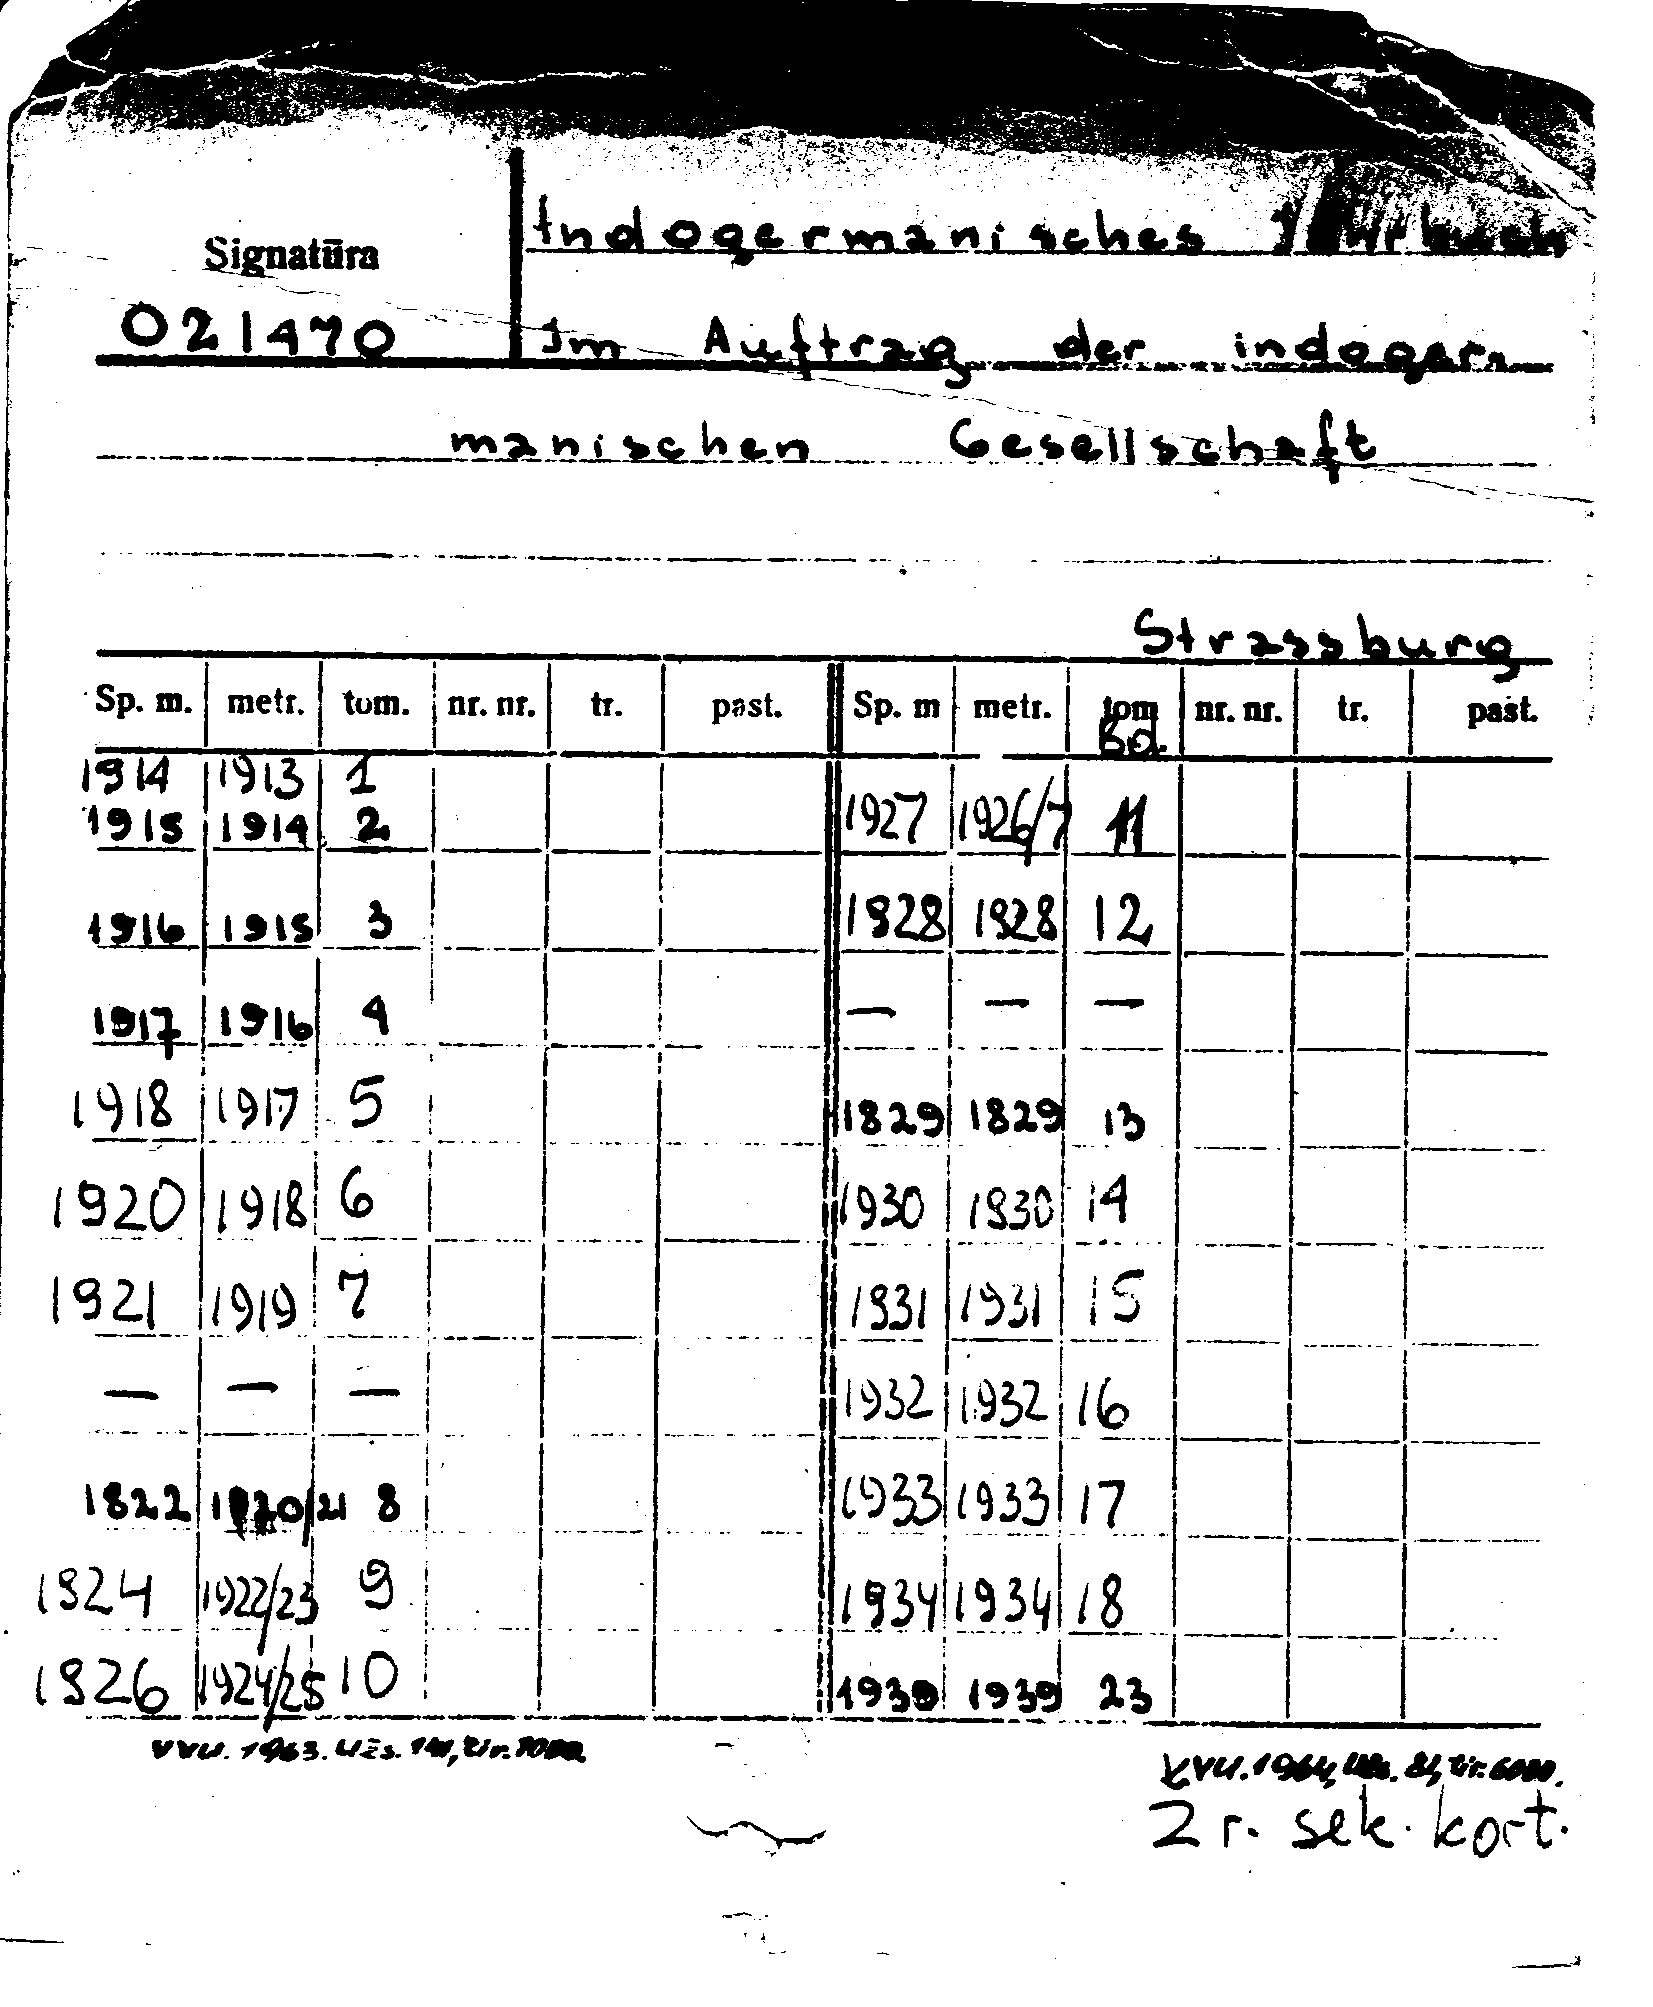 Indogermanisches Jahrbuch
Signatūra
021470
Im Auftrag der indoger-
manischen Gesellschaft
Strassburg
Sp. m. metr. tom. nr. nr. tr. past. Sp. m metr. tom nr. nr. tr. past.
Bd.
1914 1913 1
1915 1914 2 1927 1926/7 11
1916 1915 3 1928 1928 12
1917 1916 4 — — —
1918 1917 5 1829 1829 13
1920 1918 6 1930 1930 14
1921 1919 7 1931 1931 15
— — — 1932 1932 16
1822 1920/21 8 1933 1933 17
1924 1922/23 9 1934 1934 18
1926 1924/25 10 1939 1939 23
VVU. 1963. Užs. tir.
VVU. 1964, Užs. 81, tir. 6000.
2 r. sek. kort.